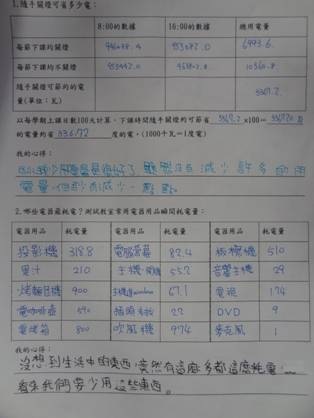 1.隨手關燈可省多少電：
8:00的數據 16:00的數據 總用電量
每節下課均關燈 .0 6993.6
每節下課均不關燈 953442.0 10360.8
隨手關燈可節約的電量(單位：瓦) 3367.2
以每學期上課日數100天計算，下課時間隨手關燈約可節省 3367.2 ×100= 336720 瓦
的電量約省 336.72 度的電，(1000千瓦=1度電)
我的心得：
減少許多的用
電量，但卻減少一點點
2.哪些電器最耗電？測試教室常用電器用品瞬間耗電量：
電器用品 耗電量 電器用品 耗電量 電器用品 耗電量
投影機 318.8 電腦螢幕 82.4 板擦機 510
果汁 210 主機 55.2 音響主機 29
烤麵包機 900 主機 67.1 電視 174
電咖啡壺 590 22 DVD 9
電烤箱 800 吹風機 974 麥克風 1
我的心得：
沒想到生活中的東西，竟然有這麼多都這麼耗電……
看來我們要少用這些東西。